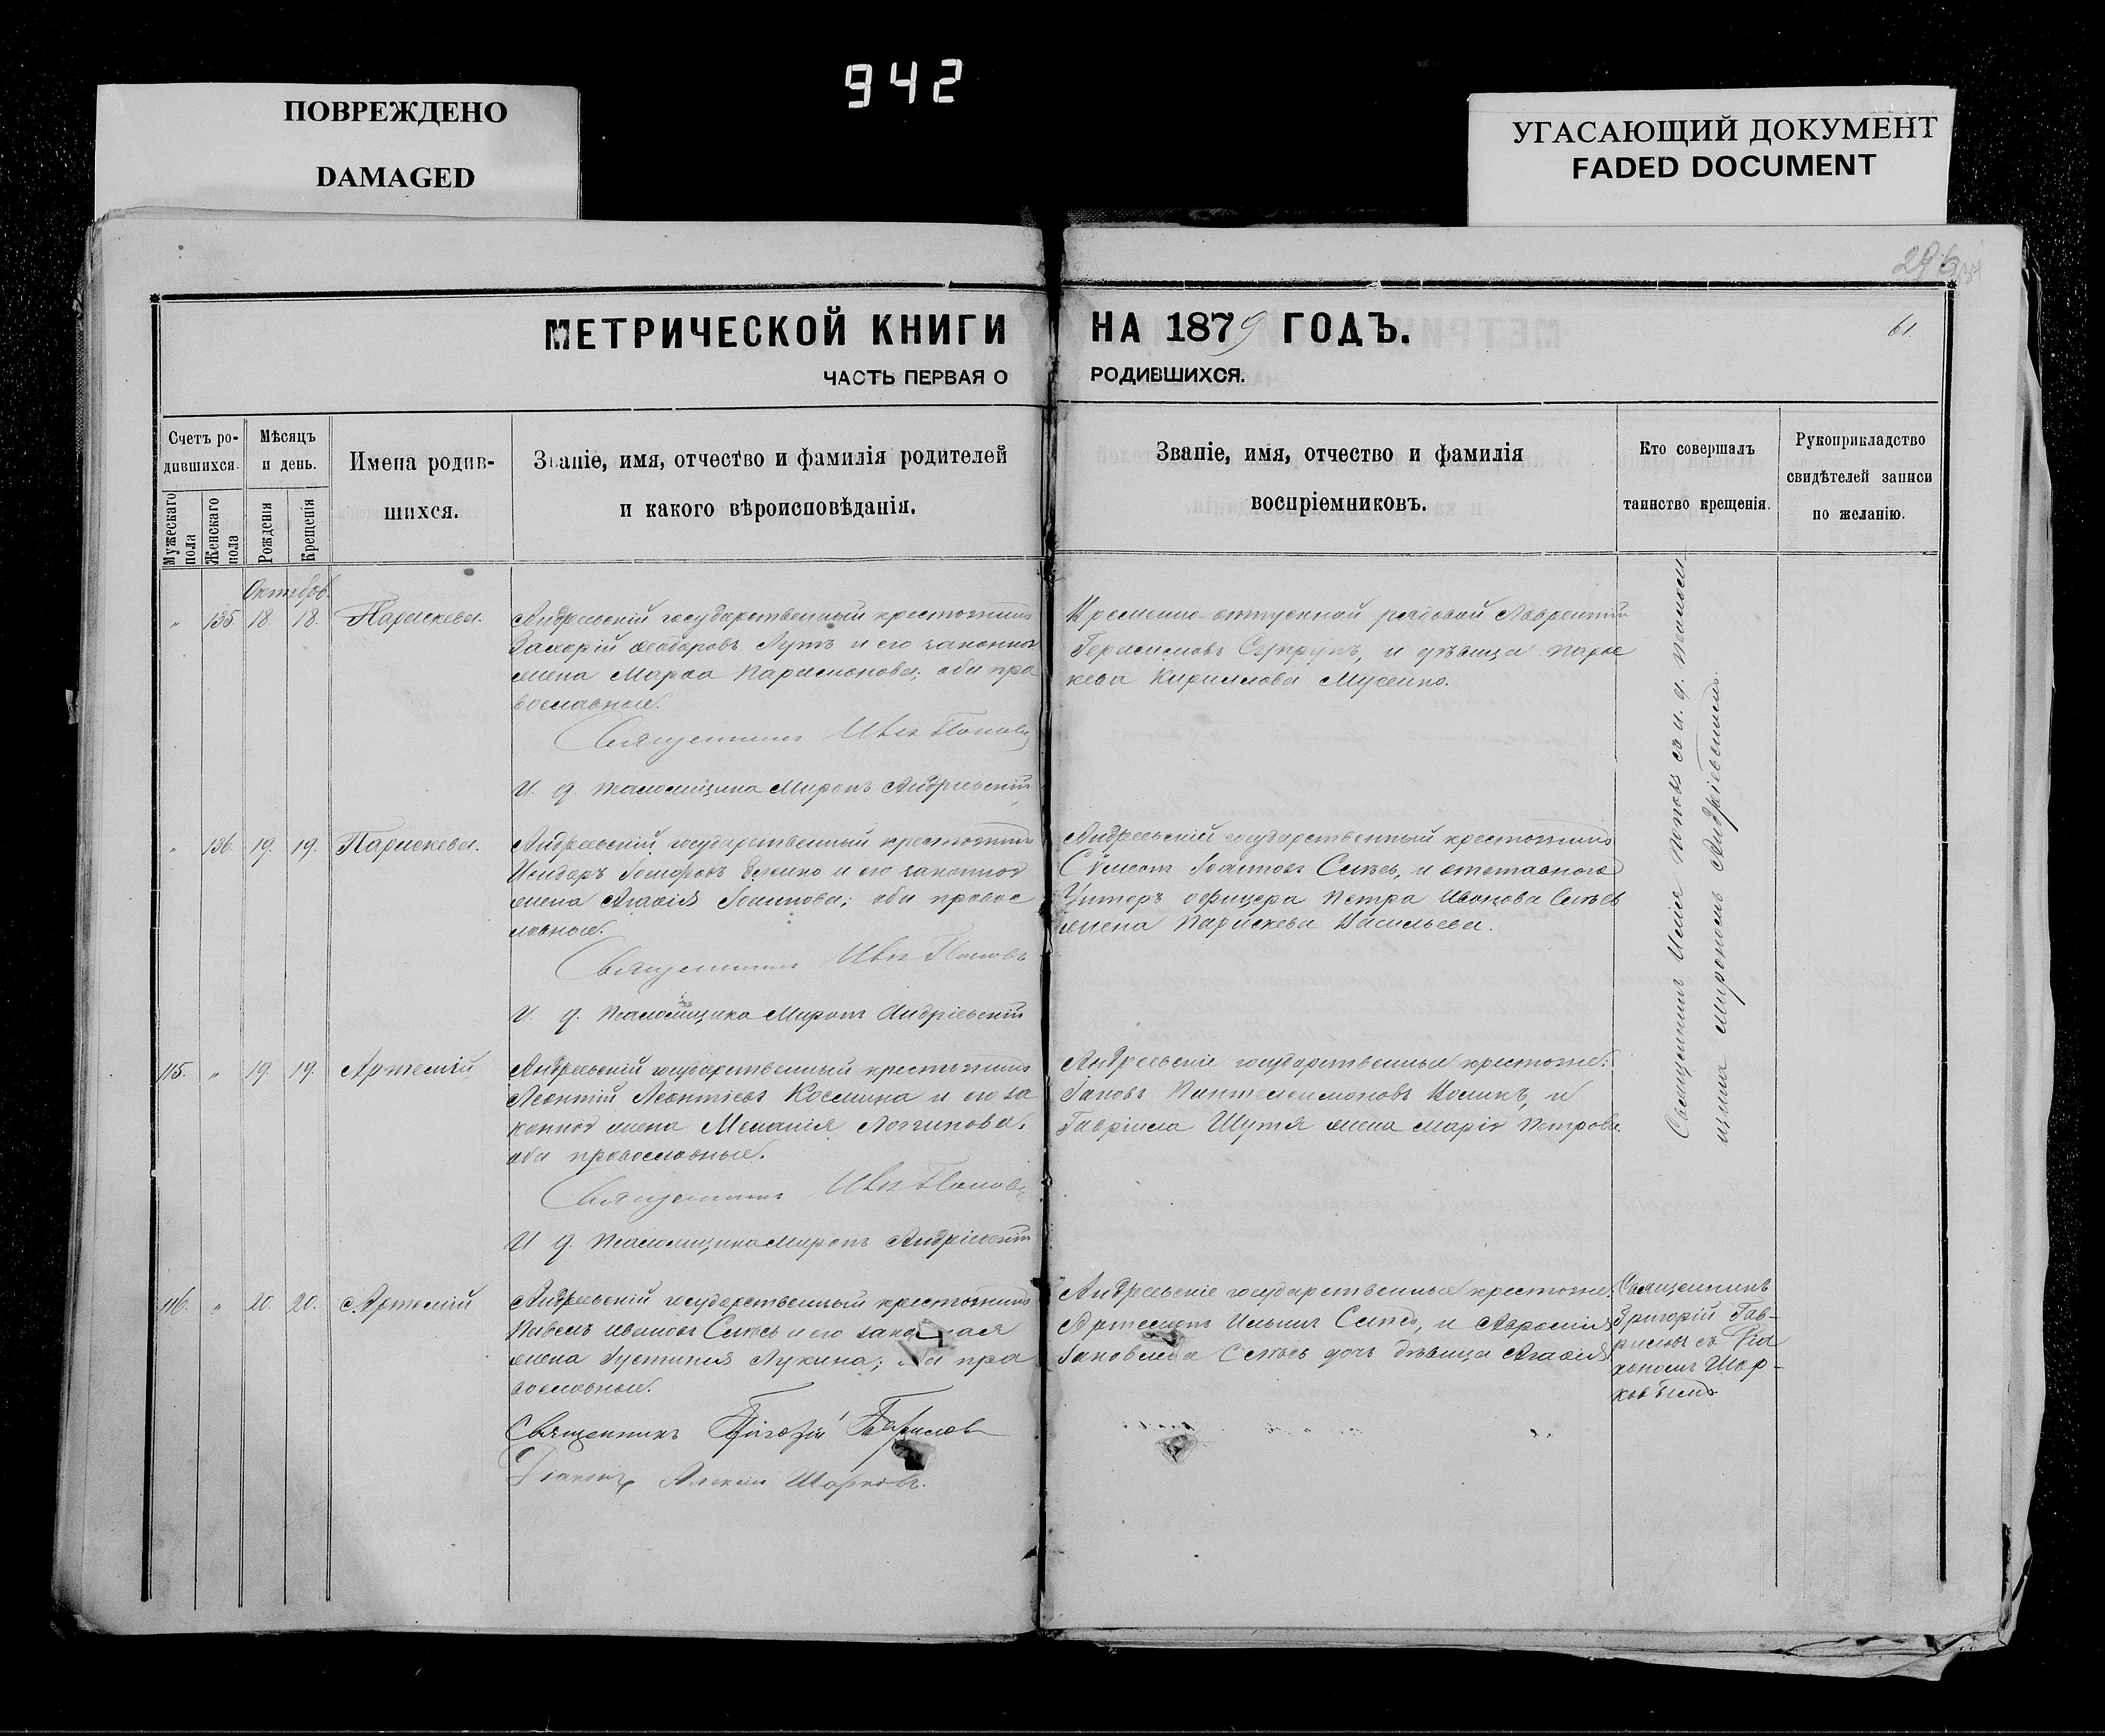 942
ПОВРЕЖДЕНО
DAMAGED
УГАСАЮЩИЙ ДОКУМЕНТ
FADED DOCUMENT
61.
МЕТРИЧЕСКОЙ КНИГИ НА 1879 ГОДЪ.
ЧАСТЬ ПЕРВАЯ О РОДИВШИХСЯ.
Счетъ ро-
дившихся.
Мужескаго пола
Женскаго пола
Мѣсяцъ
и день.
Рожденія
Крещенія
Имена родив-
шихся.
Званіе, имя, отчество и фамилія родителей
и какого вѣроисповѣданія.
Званіе, имя, отчество и фамилія
воспріемниковъ.
Кто совершалъ
таинство крещенія.
Рукоприкладство
свидѣтелей записи
по желанію.
Октябрь.
" 135. 18. 18. Параскева.
Андреевскій государственный крестьянинъ
Захарій Ѳеодоровъ Лутъ и его законная
жена Марѳа Парамонова; оба пра
вославные.
Священникъ Илія Поповъ
И. д. псаломщика Миронъ Андріевскій
Временно-отпускной рядовой Лаврентій
Герасимовъ Супрунъ, и дѣвица Парас
кева Кириллова Мусенко.
" 136. 19. 19. Параскева.
Андреевскій государственный крестьянинъ
Исидоръ и его законная
жена Агаѳія Іоаннова; оба правос
лавные.
Священникъ Илія Поповъ
И. д. псаломщика Миронъ Андріевскій
Андреевскій государственный крестьянинъ
Сѵмеонъ Іоанновъ и отставного
Унтеръ офицера Петра Иванова
жена Параскева Васильева.
115. " 19. 19. Артемій
Андреевскій государственный крестьянинъ
Леонтій Леонтіевъ Космина и его за
конная жена Меланія Логгинова,
оба православные.
Священникъ Илія Поповъ
И. д. псаломщика Миронъ Андріевскій
Андреевскіе государственные крестьяне:
Іаковъ Пантелеимоновъ и
Гавріила Шутя жена Марія Петрова.
Священникъ Илія Поповъ съ и. д. псалом
щика Мирономъ Андріевскимъ.
116. " 20. 20. Артемій
Андреевскій государственный крестьянинъ
Павелъ Ивановъ и его законная
жена Іустинія Лукина; оба пра
вославные.
Священникъ Григорій Гавриловъ
Діаконъ Алексій Шарковъ.
Андреевскіе государственные крестьяне:
Артемонъ Ильинъ и
дочь дѣвица Агаѳія
Священникъ
Григорій Гав-
риловъ съ Діа
кономъ Шар-
ковымъ